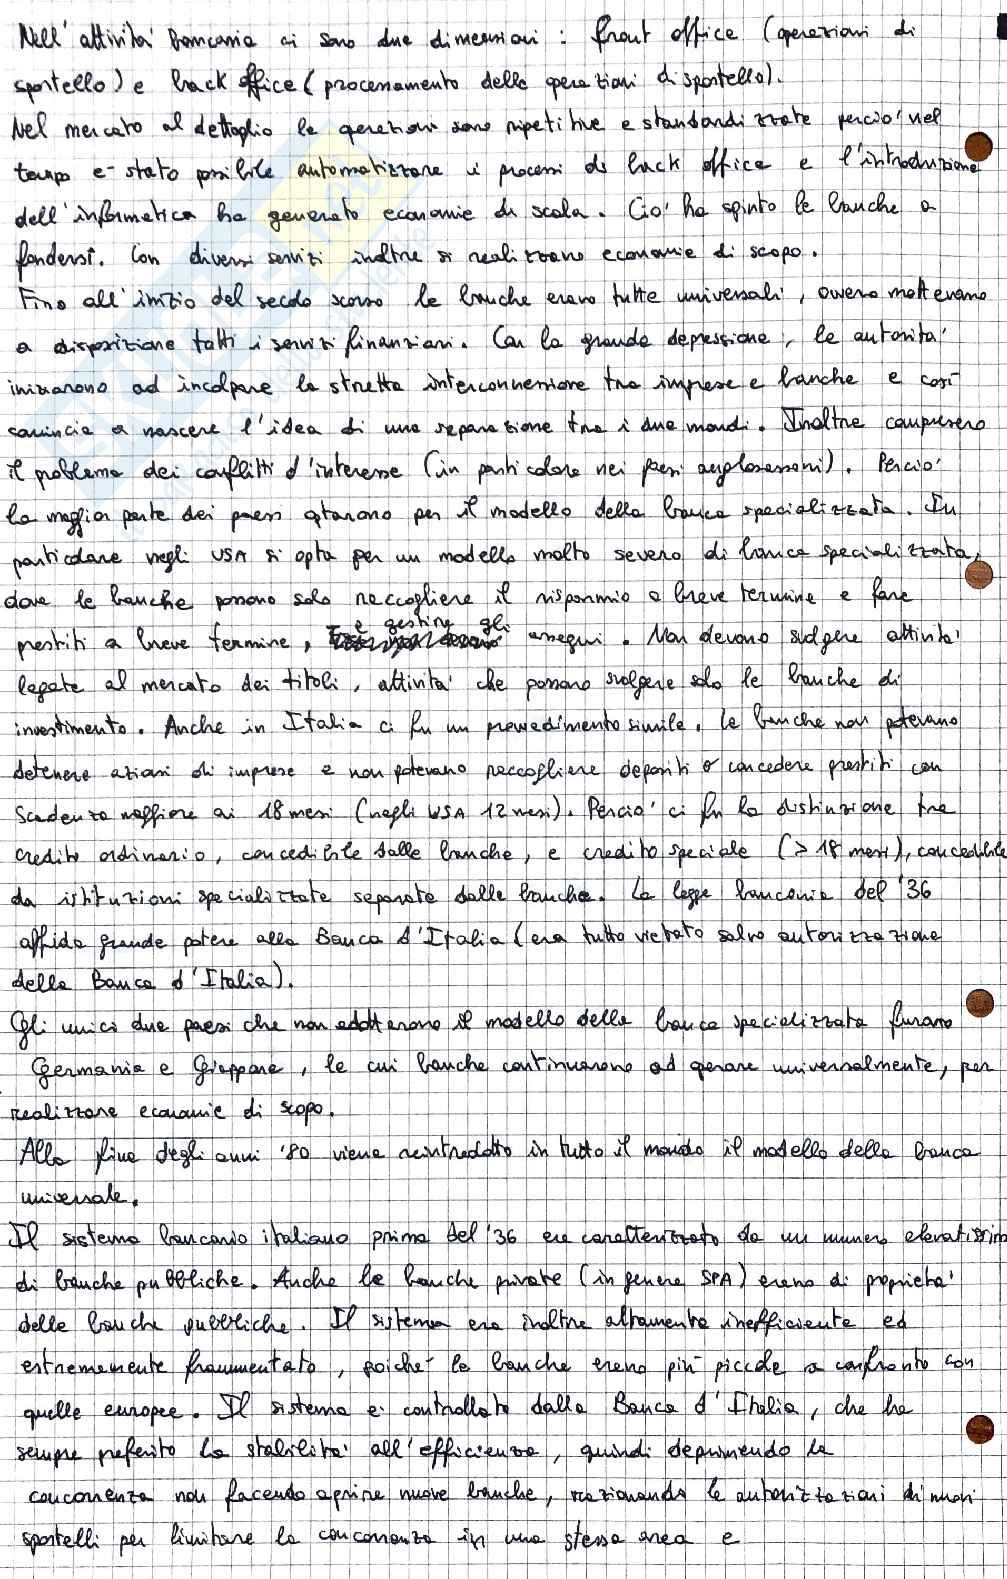 Nell'attività bancaria ci sono due dimensioni: front office (operazioni di
sportello) e back office (processamento delle operazioni di sportello).
Nel mercato al dettaglio le operazioni sono ripetitive e standardizzate perciò nel
tempo è stato possibile automatizzare i processi di back office e l'introduzione
dell'informatica ha generato economie di scala. Ciò ha spinto le banche a
fondersi. Con diversi servizi inoltre si realizzano economie di scopo.
Fino all'inizio del secolo scorso le banche erano tutte universali, ovvero mettevano
a disposizione tutti i servizi finanziari. Con la grande depressione, le autorità
iniziarono ad incolpare la stretta interconnessione tra imprese e banche e così
comincia a nascere l'idea di una separazione tra i due mondi. Inoltre compresero
il problema dei conflitti d'interesse (in particolare nei paesi anglosassoni). Perciò
la maggior parte dei paesi optarono per il modello della banca specializzata. In
particolare negli USA si opta per un modello molto severo di banca specializzata,
dove le banche possono solo raccogliere il risparmio a breve termine e fare
prestiti a breve termine, e gestire gli assegni. Non devono svolgere attività
legate al mercato dei titoli, attività che possono svolgere solo le banche di
investimento. Anche in Italia ci fu un provvedimento simile. Le banche non potevano
detenere azioni di imprese e non potevano raccogliere depositi o concedere prestiti con
scadenza maggiore ai 18 mesi (negli USA 12 mesi). Perciò ci fu la distinzione tra
credito ordinario, concedibile dalle banche, e credito speciale (> 18 mesi), concedibile
da istituzioni specializzate separate dalle banche. La legge bancaria del '36
affida grande potere alla Banca d'Italia (era tutto vietato salvo autorizzazione
della Banca d'Italia).
Gli unici due paesi che non adottarono il modello della banca specializzata furono
Germania e Giappone, le cui banche continuarono ad operare universalmente, per
realizzare economie di scopo.
Alla fine degli anni '80 viene reintrodotto in tutto il mondo il modello della banca
universale.
Il sistema bancario italiano prima del '36 era caratterizzato da un numero elevatissimo
di banche pubbliche. Anche le banche private (in genere SPA) erano di proprietà
delle banche pubbliche. Il sistema era inoltre altamente inefficiente ed
estremamente frammentato, poiché le banche erano più piccole a confronto con
quelle europee. Il sistema è controllato dalla Banca d'Italia, che ha
sempre preferito la stabilità all'efficienza, quindi deprimendo la
concorrenza non facendo aprire nuove banche, razionando le autorizzazioni di nuovi
sportelli per limitare la concorrenza in una stessa area e